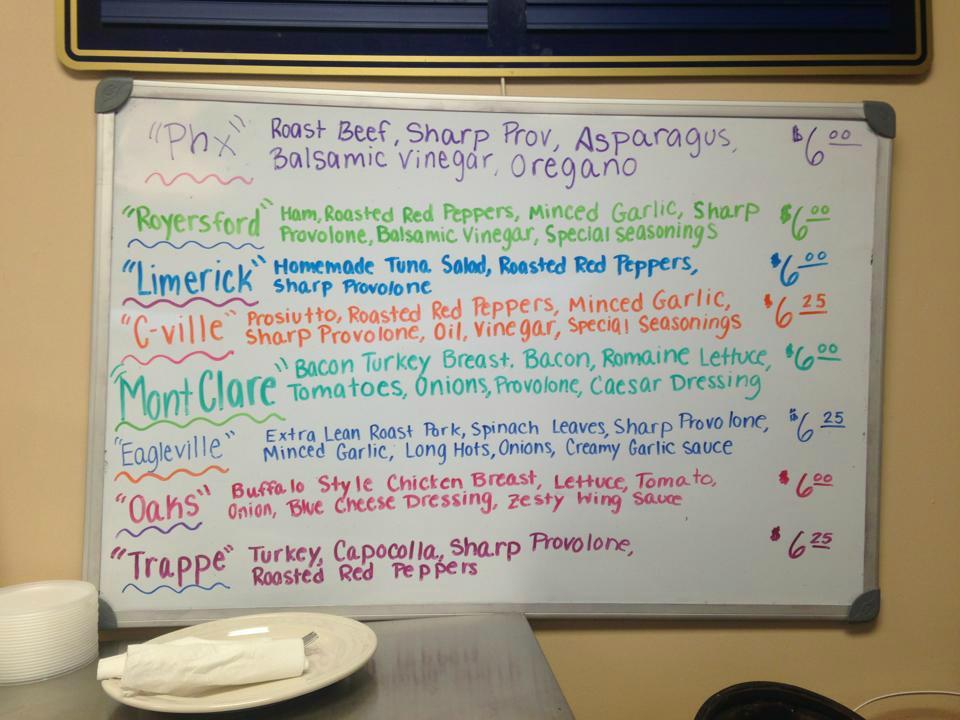 "Phx" Roast Beef, Sharp Prov, Asparagus, $6.00
Balsamic Vinegar, Oregano
"Royersford" Ham, Roasted Red Peppers, Minced Garlic, Sharp $6.00
Provolone, Balsamic Vinegar, Special Seasonings
"Limerick" Homemade Tuna Salad, Roasted Red Peppers, $6.00
Sharp Provolone
"C-ville" Prosiutto, Roasted Red Peppers, Minced Garlic, $6.25
Sharp Provolone, Oil, Vinegar, Special Seasonings
"Mont Clare" Bacon Turkey Breast. Bacon, Romaine Lettuce, $6.00
Tomatoes, Onions, Provolone, Caesar Dressing
"Eagleville" Extra Lean Roast Pork, Spinach Leaves, Sharp Provolone, $6.25
Minced Garlic, Long Hots, Onions, Creamy Garlic sauce
"Oaks" Buffalo Style Chicken Breast, Lettuce, Tomato, $6.00
Onion, Blue Cheese Dressing, Zesty Wing Sauce
"Trappe" Turkey, Capocolla, Sharp Provolone, $6.25
Roasted Red Peppers